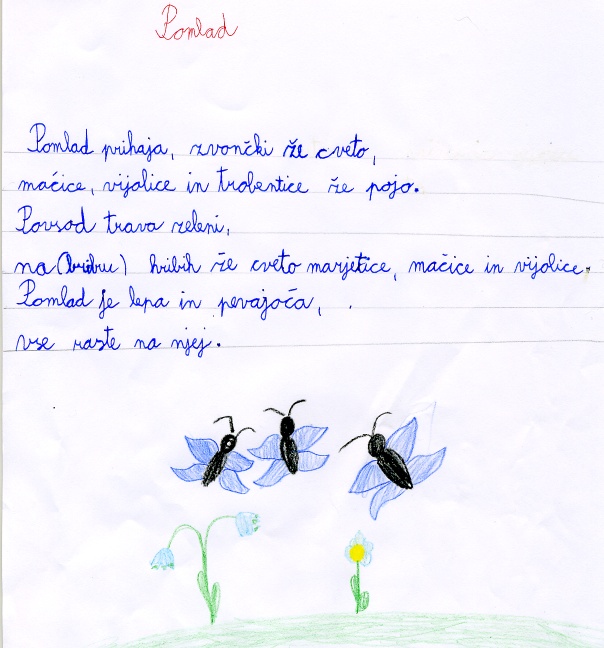 Pomlad
Pomlad prihaja, zvončki že cveto,
mačice, vijolice in trobentice že pojo.
Povsod trava zeleni,
na (hribru) hribih že cveto marjetice, mačice in vijolice.
Pomlad je lepa in pevajoča,
vse raste na njej.